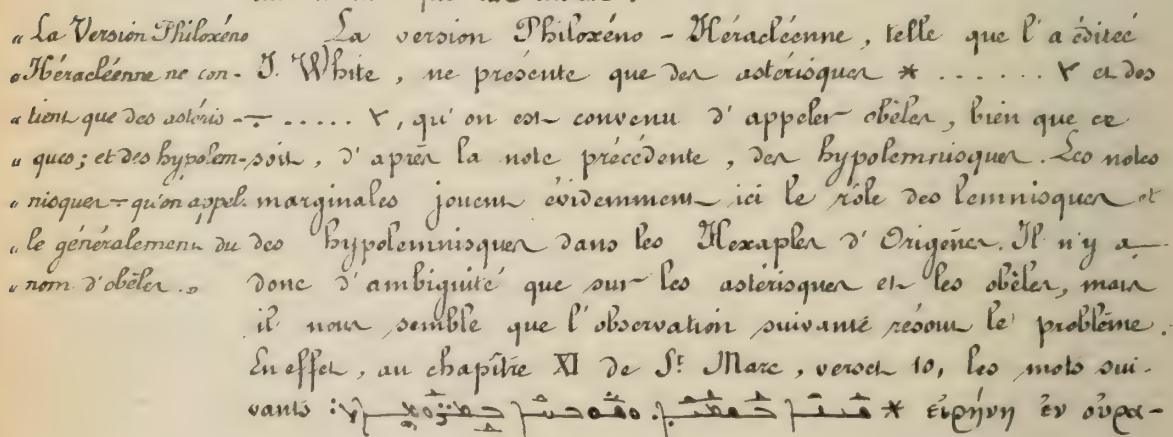 « La Version Philoxéno
« Héracléenne ne con-
« tient que des astéris-
« ques ; et des hypolem-
« nisques ÷ qu'on appel-
« le généralement du
« nom d'obèles. »
La version Philoxéno-Héracléenne, telle que l'a éditée
J. White, ne présente que des astérisques * ...... ٧ et des
÷ ..... ٧, qu'on est convenu d'appeler obèles, bien que ce
soit, d'après la note précédente, des hypolemnisques. Les notes
marginales jouent évidemment ici le rôle des lemnisques et
des hypolemnisques dans les Hexaples d'Origènes. Il n'y a
donc d'ambiguité que sur les astérisques et les obèles, mais
il nous semble que l'observation suivante résout le problème.
En effet, au chapitre XI de St Marc, verset 10, les mots sui-
vants : * εἰρήνη ἐν οὐρα-